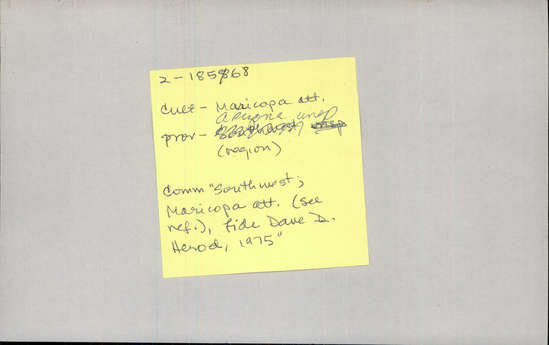 2-185868
Cult- Maricopa att.
Arizona unsp
prov- Southwest unsp
(region)
Comm "Southwest;
Maricopa att. (see
ref.), Fide Dave D.
Herod, 1975"